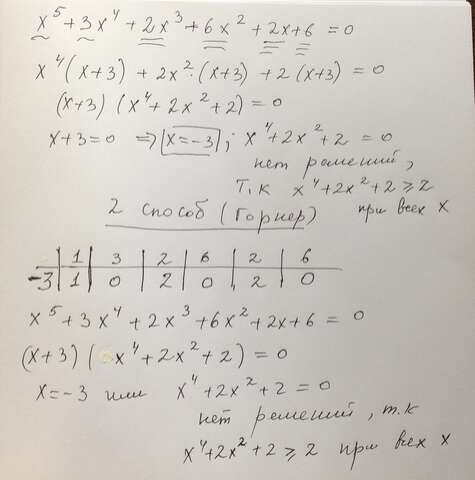 x⁵ + 3x⁴ + 2x³ + 6x² + 2x + 6 = 0
x⁴(x+3) + 2x²·(x+3) + 2(x+3) = 0
(x+3)(x⁴ + 2x² + 2) = 0
x+3=0 ⇒ x=-3 ; x⁴ + 2x² + 2 = 0
нет решений,
т.к x⁴ + 2x² + 2 ≥ 2
при всех x
2 способ (Горнер)
| 1 | 3 | 2 | 6 | 2 | 6
-3 | 1 | 0 | 2 | 0 | 2 | 0
x⁵ + 3x⁴ + 2x³ + 6x² + 2x + 6 = 0
(x+3)(x⁴ + 2x² + 2) = 0
x=-3 или x⁴ + 2x² + 2 = 0
нет решений, т.к
x⁴ + 2x² + 2 ≥ 2 при всех x